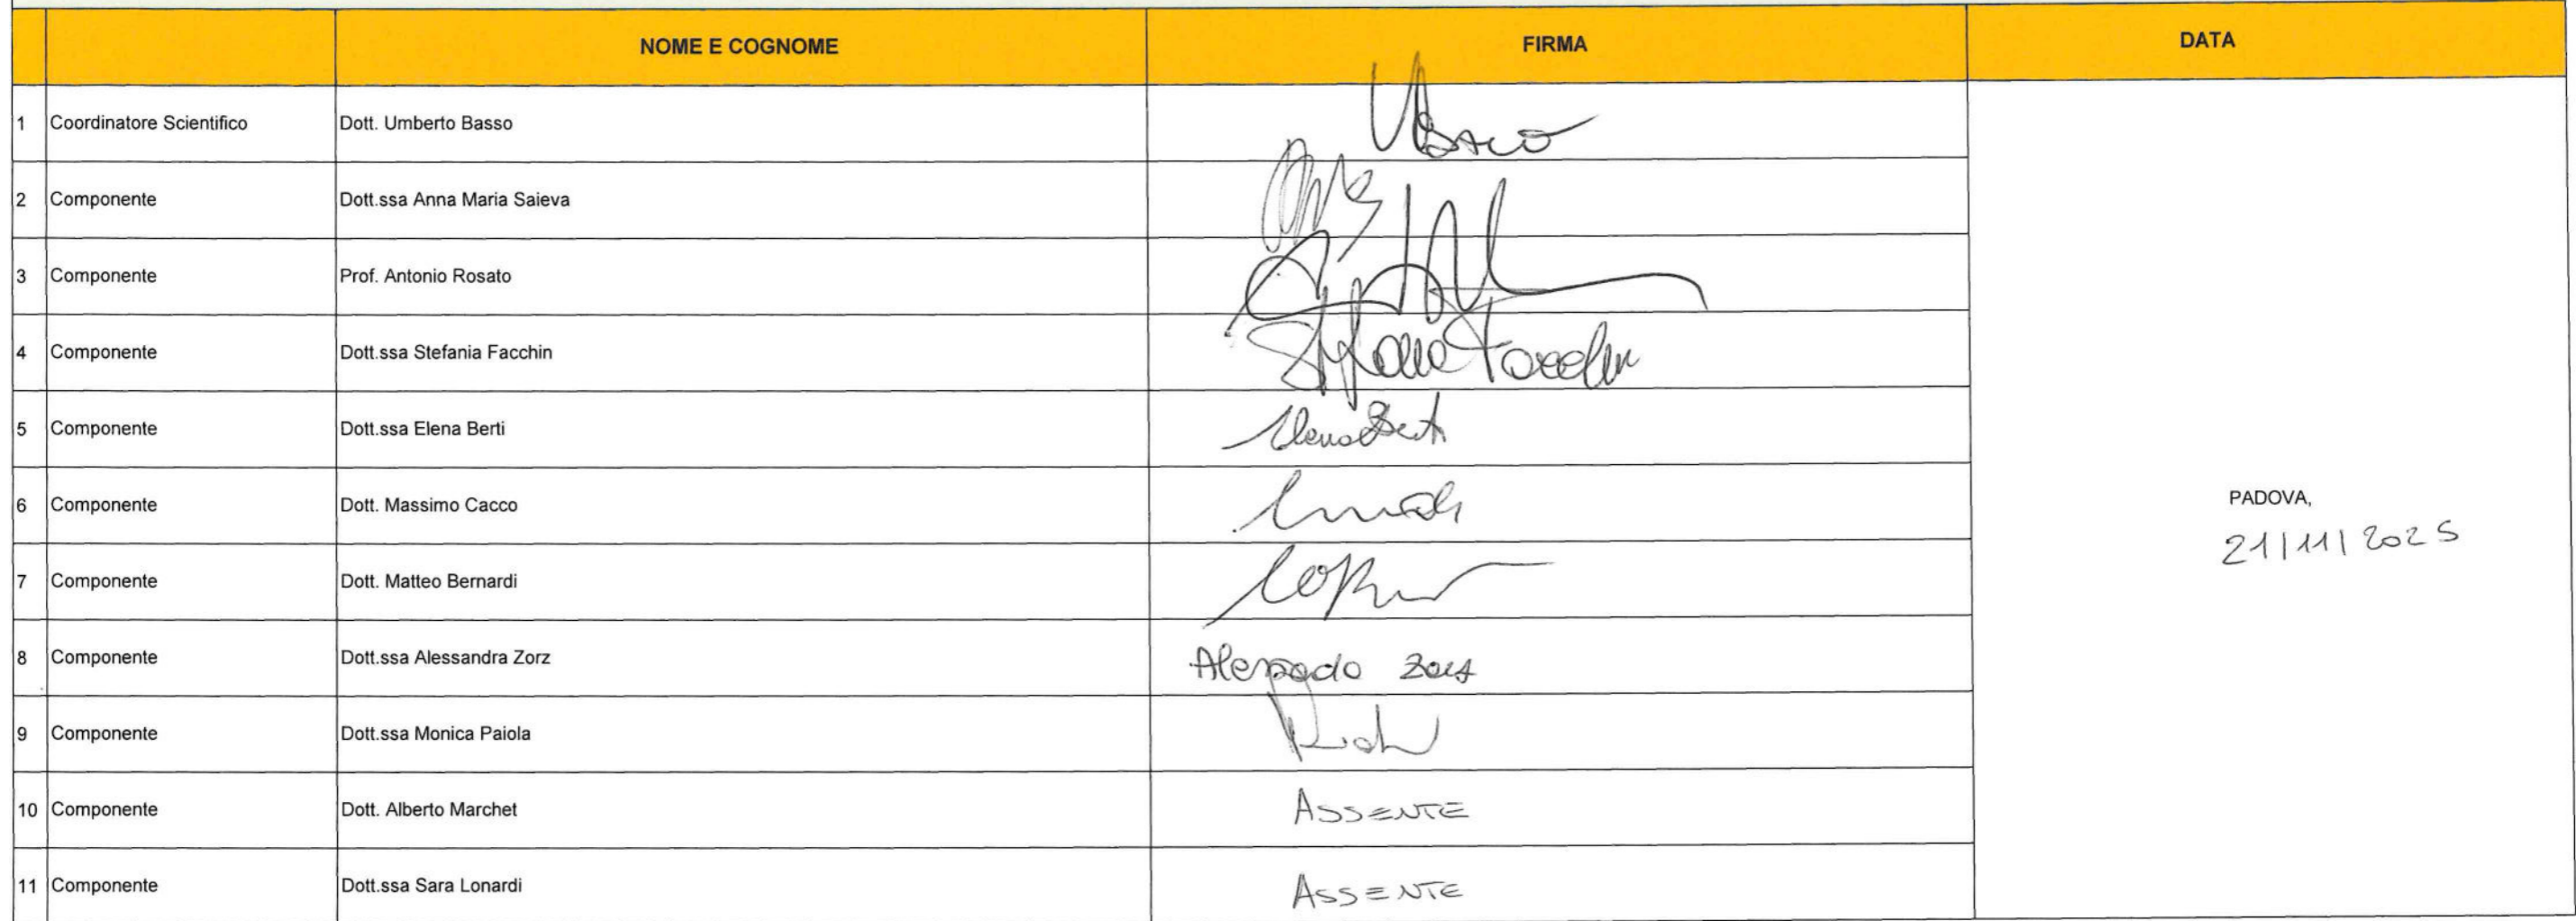 NOME E COGNOME FIRMA DATA
1 Coordinatore Scientifico Dott. Umberto Basso
2 Componente Dott.ssa Anna Maria Saieva
3 Componente Prof. Antonio Rosato
4 Componente Dott.ssa Stefania Facchin Stefania Facchin
5 Componente Dott.ssa Elena Berti Elena Berti
6 Componente Dott. Massimo Cacco
PADOVA,
21/11/2025
7 Componente Dott. Matteo Bernardi
8 Componente Dott.ssa Alessandra Zorz Alessandra Zorz
9 Componente Dott.ssa Monica Paiola
10 Componente Dott. Alberto Marchet ASSENTE
11 Componente Dott.ssa Sara Lonardi ASSENTE